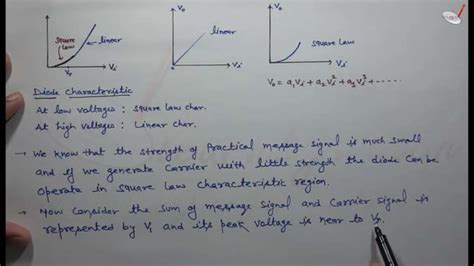 V₀
V₀
V₀
Square Law
linear
linear
Square Law
Vᵧ
Vᵢ
Vᵢ
Vᵢ
V₀ = a₁Vᵢ + a₂Vᵢ² + a₃Vᵢ³ + -----
Diode Characteristic
At low voltages : Square law char.
At high voltages : Linear char.
→ We know that the strength of Practical message signal is much small
and if we generate Carrier with little strength the diode Can be
Operate in Square Law characteristic region.
→ Now Consider the sum of message signal and Carrier signal is
represented by V₁ and its peak voltage is near to Vᵧ.